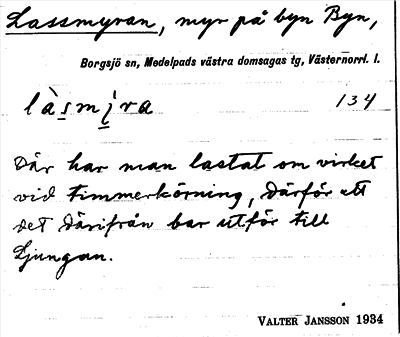 Lassmyran, myr på byn Byn,
Borgsjö sn, Medelpads västra domsagas tg, Västernorrl. l.
làsmi̥ra 134
Där har man lastat om virket
vid timmerkörning, därför att
det därifrån bar utför till
Ljungan.
VALTER JANSSON 1934